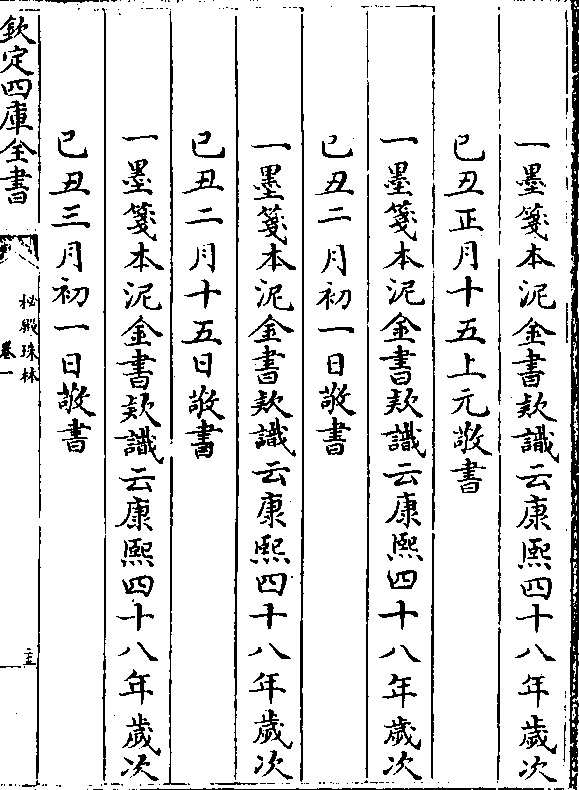 一墨箋本泥金書款識云康熙四十八年歲次
己丑正月十五上元敬書
一墨箋本泥金書款識云康熙四十八年歲次
己丑二月初一日敬書
一墨箋本泥金書款識云康熙四十八年歲次
己丑二月十五日敬書
一墨箋本泥金書款識云康熙四十八年歲次
己丑三月初一日敬書
欽定四庫全書
秘殿珠林
卷一